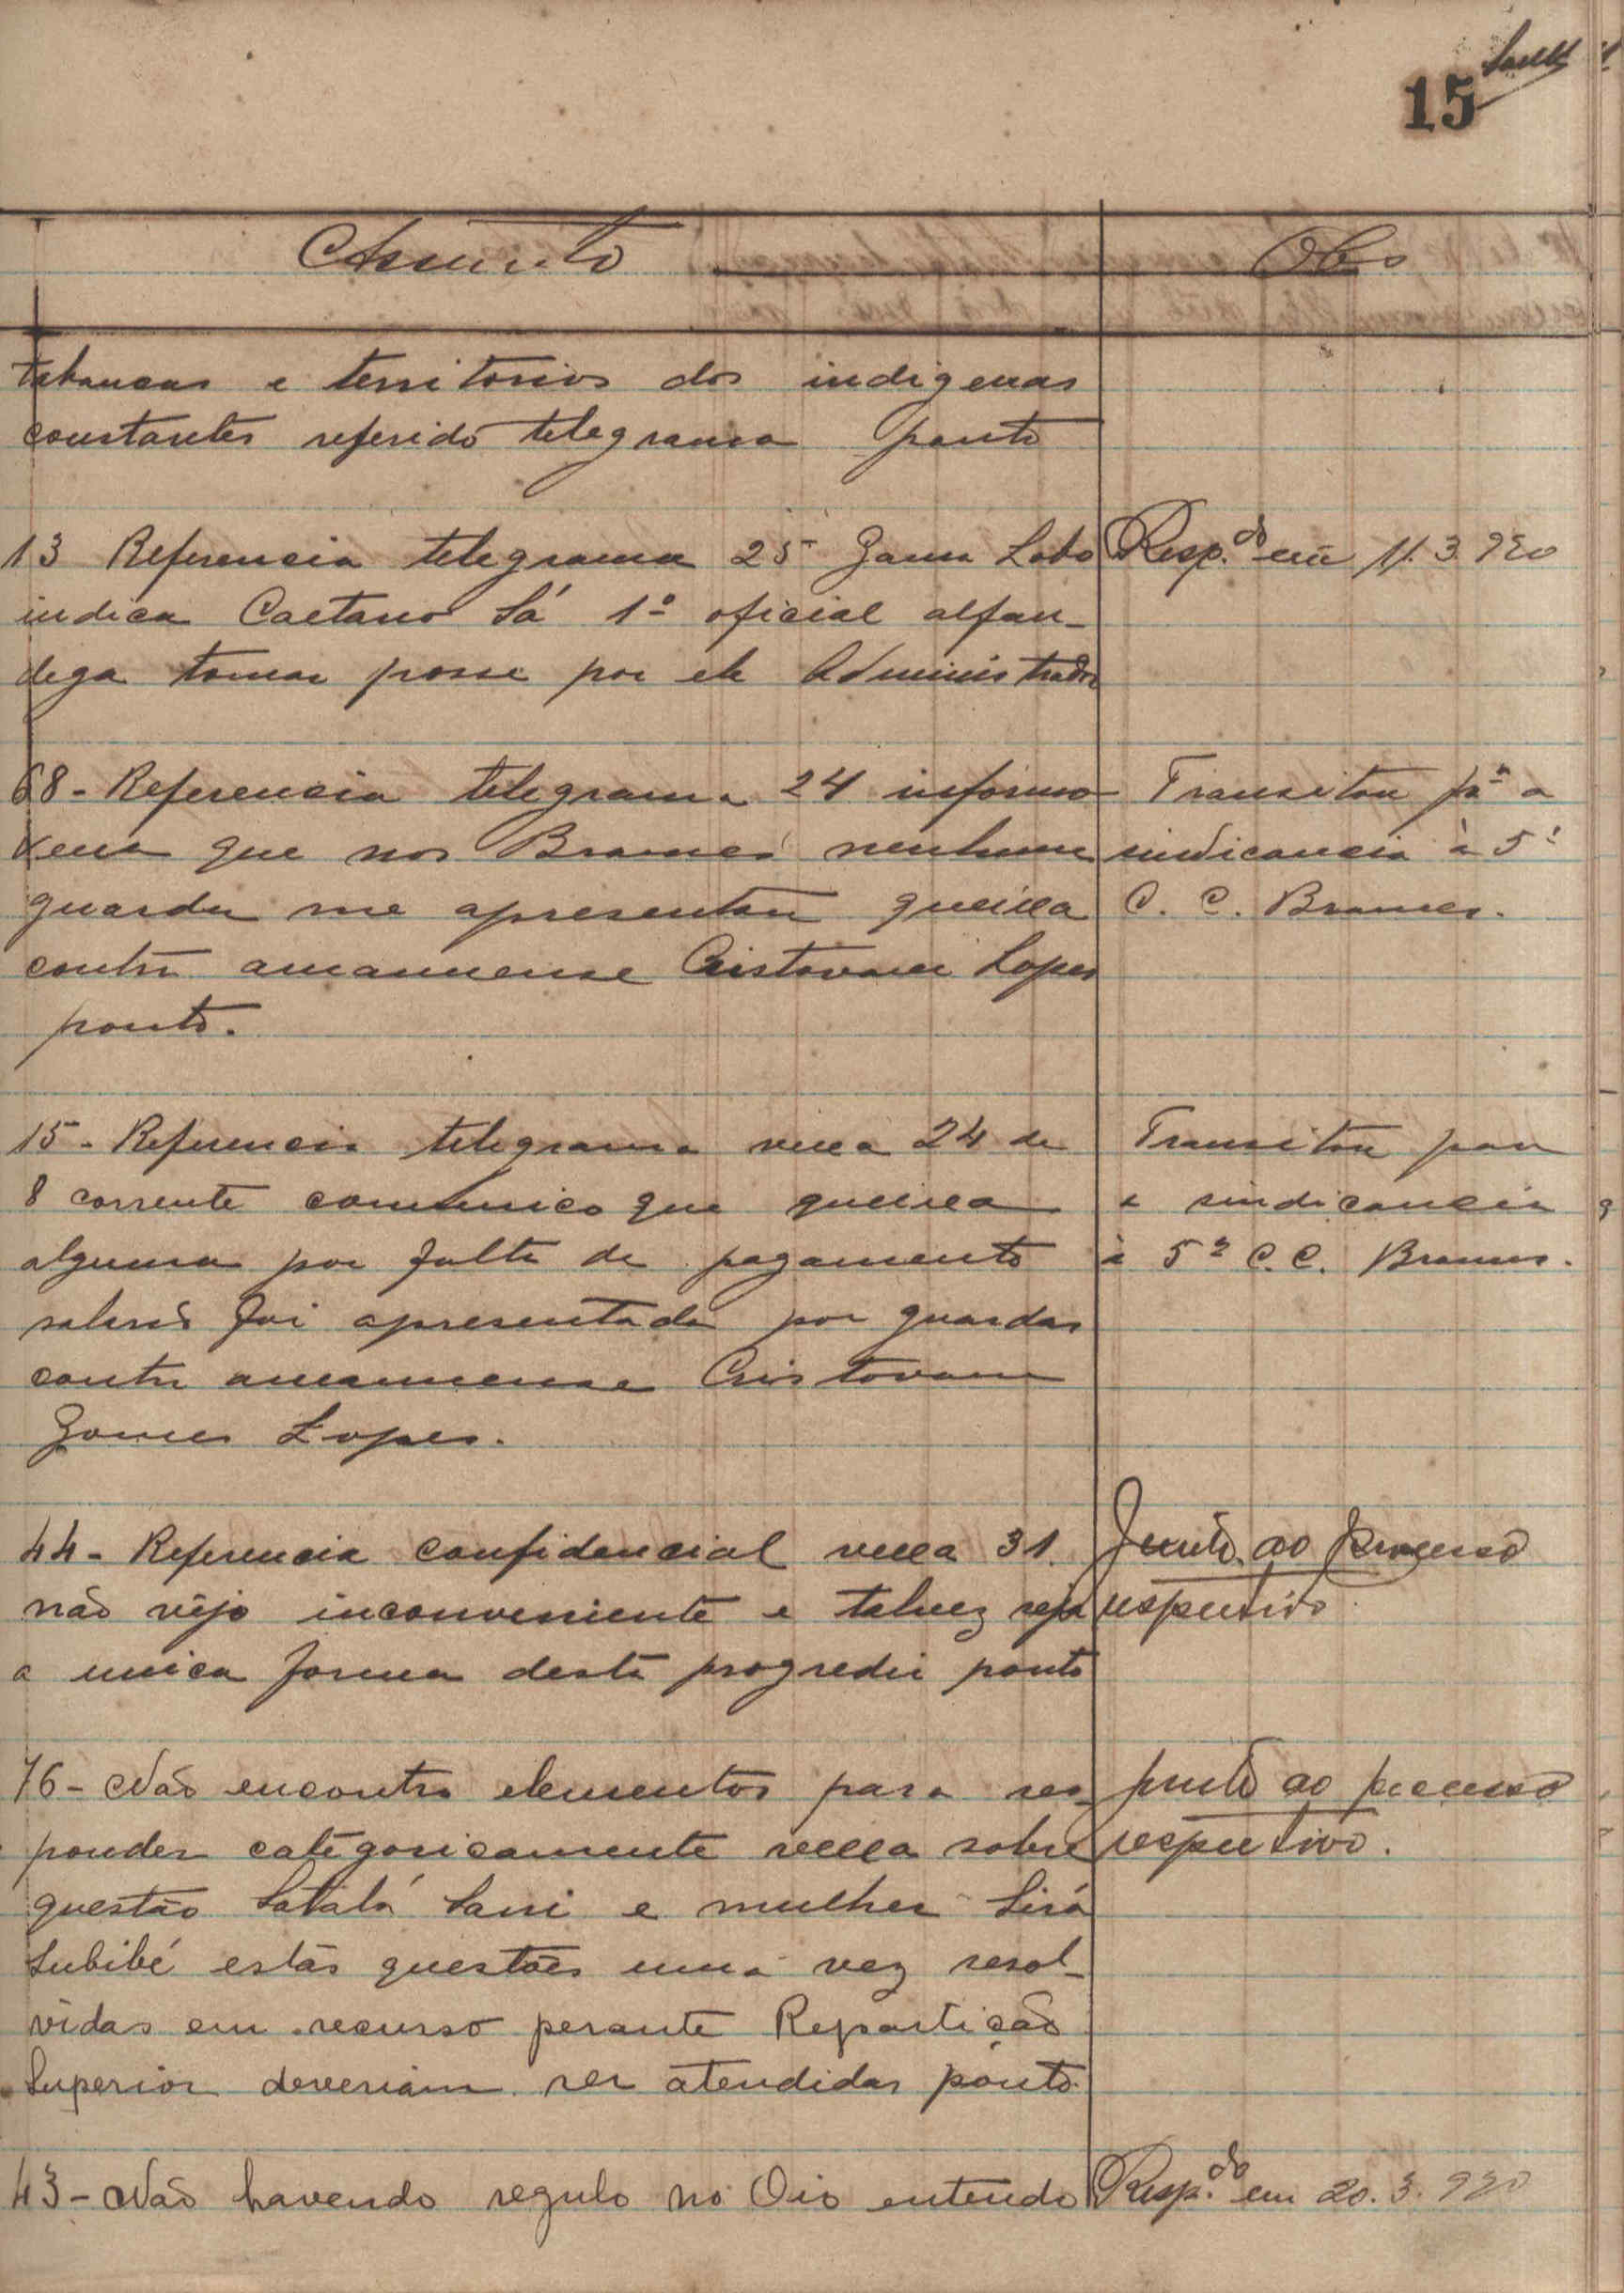 15
Assunto
Obs
tabancas e territorios dos indigenas
constantes referido telegrama ponto
13 Referencia telegrama 25 Gama Lobo
Resp.do em 11.3.920
indica Caetano Sá 1º oficial alfan-
dega tomar posse por ele Administrador
68 - Referencia telegrama 24 informo
Transitou pª a
xexa que nos Brames nenhum
sindicancia à 5ª
guarda me apresentou queixa
C. C. Brames.
contra amanuense Cristovam Lopes
ponto.
15 - Referencia telegrama vexa 24 de
Transitou para
8 corrente comunico que queixa
a sindicancia
alguma por falta de pagamento
à 5ª C. C. Brames.
salarios foi apresentada por guardas
contra amanuense Cristovam
Gomes Lopes.
44 - Referencia confidencial vexa 31
Junto ao processo
não vejo inconveniente e talvez seja
respectivo
a unica forma desta progredir ponto
76 - Não encontro elementos para res-
junto ao processo
ponder categoricamente vexa sobre
respectivo.
questão Satalá Sani e mulher Sirá
Subibé estas questões uma vez resol-
vidas em recurso perante Repartição
Superior deveriam ser atendidas ponto.
43 - Não havendo regulo no Oio entendo
Resp.do em 20.3.920